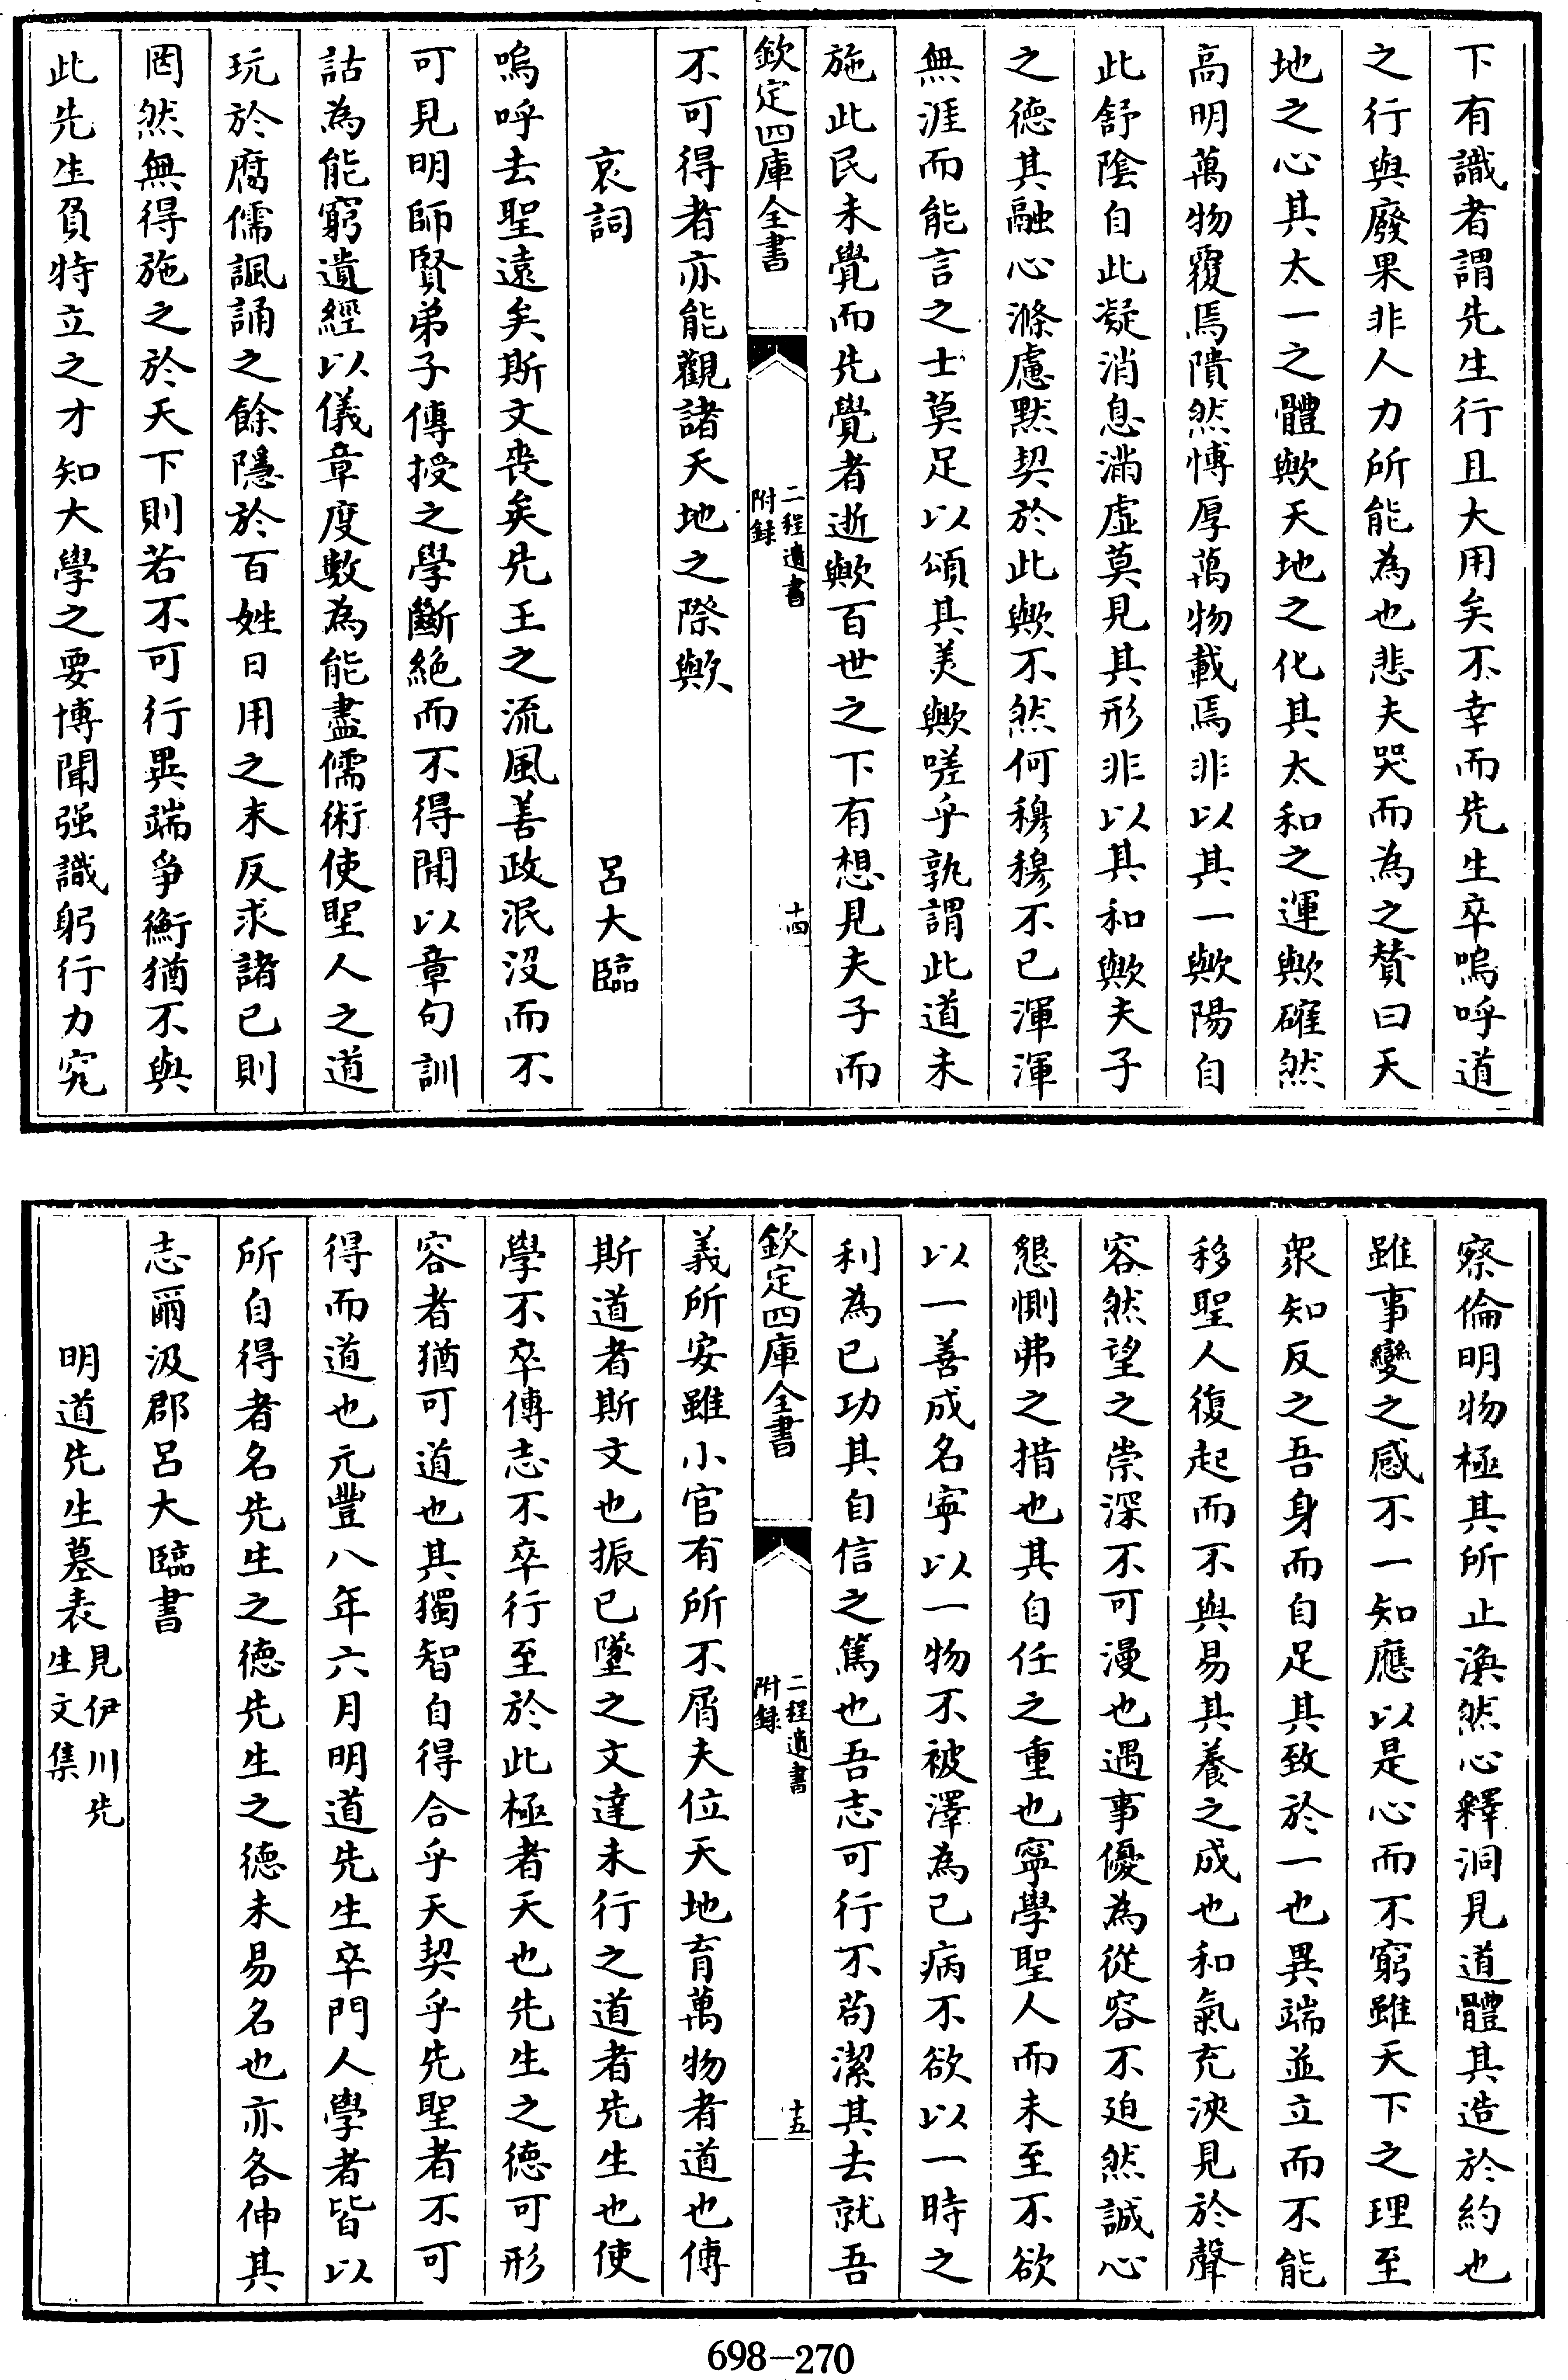 下有識者謂先生行且大用矣不幸而先生卒嗚呼道
之行與廢果非人力所能為也悲夫哭而為之賛曰天
地之心其太一之體歟天地之化其太和之運歟確然
高明萬物覆焉隤然博厚萬物載焉非以其一歟陽自
此舒陰自此凝消息滿虛莫見其形非以其和歟夫子
之德其融心滌慮黙契於此歟不然何穆穆不已渾渾
無涯而能言之士莫足以頌其美歟嗟乎孰謂此道未
施此民未覺而先覺者逝歟百世之下有想見夫子而
欽定四庫全書
二程遺書
附録
十四
不可得者亦能觀諸天地之際歟
哀詞
呂大臨
嗚呼去聖遠矣斯文喪矣先王之流風善政泯沒而不
可見明師賢弟子傳授之學斷絶而不得聞以章句訓
詁為能窮遺經以儀章度數為能盡儒術使聖人之道
玩於腐儒諷誦之餘隱於百姓日用之末反求諸已則
罔然無得施之於天下則若不可行異端爭衡猶不與
此先生負特立之才知大學之要博聞强識躬行力究
察倫明物極其所止渙然心釋洞見道體其造於約也
雖事變之感不一知應以是心而不窮雖天下之理至
衆知反之吾身而自足其致於一也異端並立而不能
移聖人復起而不與易其養之成也和氣充浹見於聲
容然望之崇深不可漫也遇事優為從容不廹然誠心
懇惻弗之措也其自任之重也寧學聖人而未至不欲
以一善成名寧以一物不被澤為己病不欲以一時之
利為已功其自信之篤也吾志可行不茍潔其去就吾
欽定四庫全書
二程遺書
附録
十五
義所安雖小官有所不屑夫位天地育萬物者道也傳
斯道者斯文也振已墜之文達未行之道者先生也使
學不卒傳志不卒行至於此極者天也先生之德可形
容者猶可道也其獨智自得合乎天契乎先聖者不可
得而道也元豐八年六月明道先生卒門人學者皆以
所自得者名先生之德先生之德未易名也亦各伸其
志爾汲郡呂大臨書
明道先生墓表見伊川先
生文集
698-270